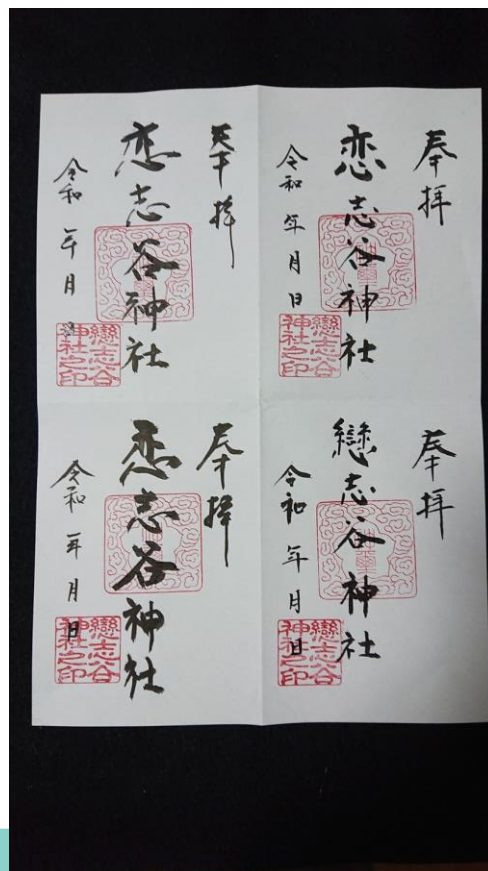 奉拝
恋志谷神社
令和 年 月 日
戀志谷神社之印
奉拝
恋志谷神社
令和 年 月
戀志谷神社之印
奉拝
戀志谷神社
令和 年 月 日
戀志谷神社之印
奉拝
恋志谷神社
令和 年 月 日
戀志谷神社之印